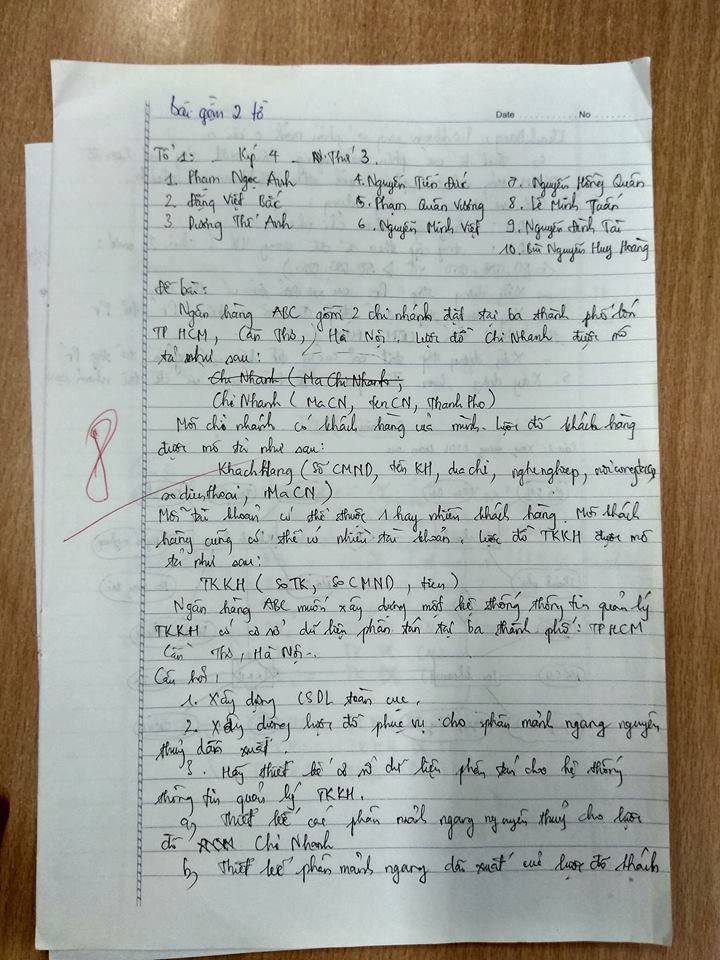 bài gồm 2 tờ
Date No
Tổ 1: - Kíp 4 - Thứ 3.
1. Phạm Ngọc Anh 4. Nguyễn Tiến Đức 7. Nguyễn Hồng Quân
2. Đặng Việt Bắc 5. Phạm Quân Vương 8. Lê Minh Tuấn
3 Dương Thế Anh 6. Nguyễn Minh Việt 9. Nguyễn Đình Tài
10. Bùi Nguyễn Huy Hoàng
Đề bài:
Ngân hàng ABC gồm 2 chi nhánh đặt tại ba thành phố lớn
TP HCM, Cần Thơ, Hà Nội. Lược đồ Chi Nhanh được mô
tả như sau:
Chi Nhanh (Ma Chi Nhanh;
Chi Nhanh (MaCN, tenCN, ThanhPho)
Mỗi chi nhánh có khách hàng của mình. Lược đồ khách hàng
được mô tả như sau:
8
KhachHang (Số CMND, tên KH, dia chi, nghe nghiep,
so dien thoai, MaCN)
Mỗi tài khoản có thể thuộc 1 hay nhiều khách hàng. Mỗi khách
hàng cũng có thể có nhiều tài khoản. Lược đồ TKKH được mô
tả như sau:
TKKH (SoTK, So CMND, tien)
Ngân hàng ABC muốn xây dựng một hệ thống thông tin quản lý
TKKH có cơ sở dữ liệu phân tán tại ba thành phố: TPHCM
Cần Thơ, Hà Nội.
Câu hỏi:
1. Xây dựng CSDL toàn cục.
2. Xây dựng lược đồ phục vụ cho phân mảnh ngang nguyên
thuỷ dẫn xuất.
3. Hãy thiết kế cơ sở dữ liệu phân tán cho hệ thống
thông tin quản lý TKKH.
a, Thiết kế các phân mảnh ngang nguyên thuỷ cho lược
đồ Chi Nhanh
b, Thiết kế phân mảnh ngang dẫn xuất của lược đồ khách